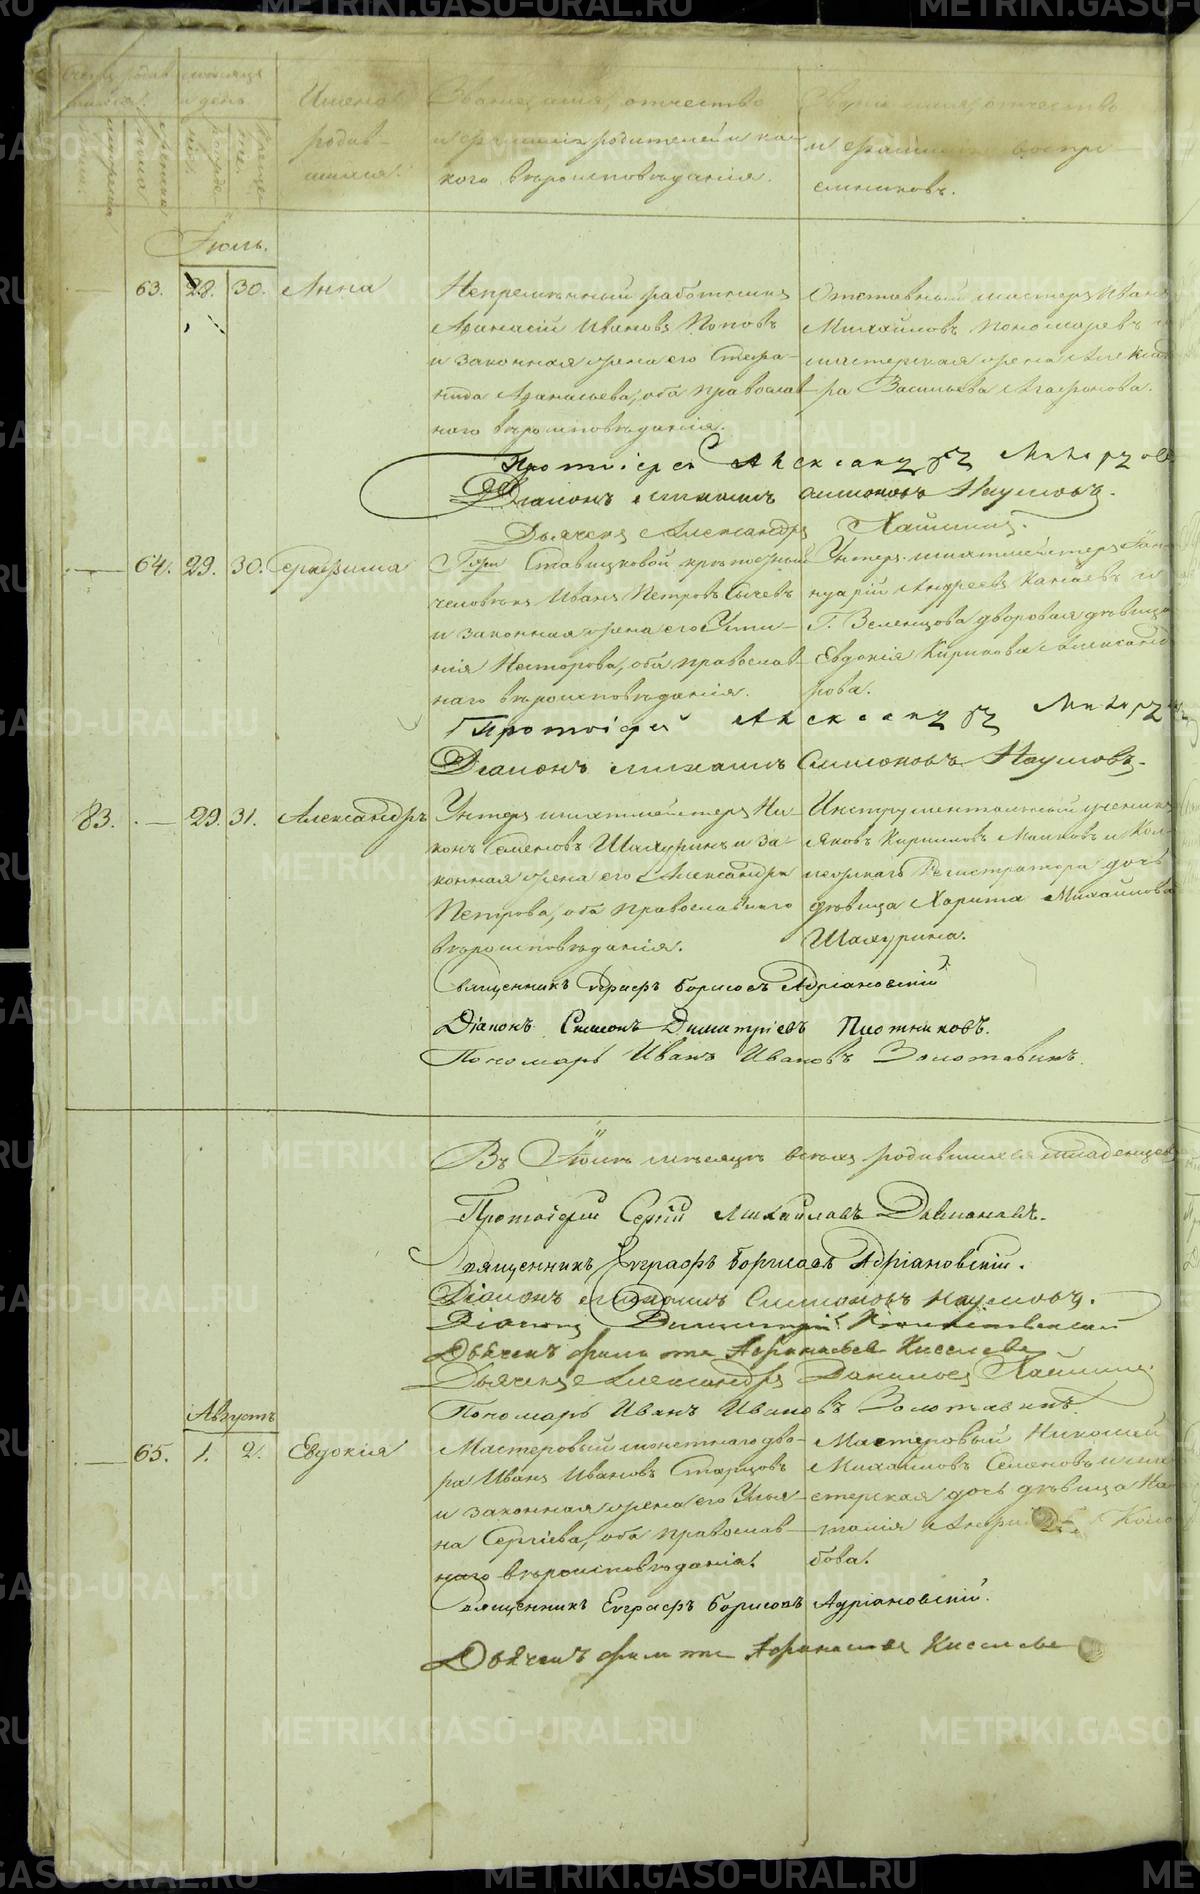 Счетъ родив- мѣсяцъ
и день.
мужеска
женска
рожде-
нія.
креще-
нія.
Имена
родив-
шихся.
Званіе, имя, отчество
и фамилія родителей и ка-
кого вѣроисповѣданія.
Званіе, имя, отчество
и фамилія воспрі-
емниковъ.
Іюль.
63. 28. 30. Анна
Непремѣнный работникъ
Афанасій Ивановъ Поповъ
и законная жена его Степа-
нида Афанасьева, оба православ-
наго вѣроисповѣданія.
Отставный мастеръ Иванъ
Михайловъ Пономаревъ и
мастерская жена Александ-
ра Васильева Агафонова.
Протоіерей Александръ
Діаконъ Михаилъ Симоновъ Наумовъ.
Дьячекъ Александръ Пашинъ.
64. 29. 30. Серафима
Г-жи Ставицковой крѣпостный
человѣкъ Иванъ Петровъ Сычевъ
и законная жена его Усти-
нія Несторова, оба православ-
наго вѣроисповѣданія.
Унтеръ-шихтмейстеръ Іан-
нуарій Андреевъ Канаевъ и
Г. Зеленцова дворовая дѣвица
Евдокія Кирилова Александ-
рова.
Протоіерей Александръ
Діаконъ Михаилъ Симоновъ Наумовъ.
83. 29. 31. Александръ
Унтеръ шихтмейстеръ Ни-
конъ Семеновъ Шахуринъ и за-
конная жена его Александра
Петрова, оба православнаго
вѣроисповѣданія.
Инструментальный ученикъ
Яковъ Кириловъ Маиковъ и Кол-
лежскаго Регистратора дочь
дѣвица Харита Михайлова
Шахурина.
Священникъ Евграфъ Борисовъ Адріановскій
Діаконъ Симеонъ Димитріевъ Плотниковъ.
Пономарь Иванъ Ивановъ Золотавинъ.
Въ Іюлѣ мѣсяцѣ всѣхъ родившихся младенцевъ
Протоіерей Сергій Михайловъ
Священникъ Евграфъ Борисовъ Адріановскій.
Діаконъ Михаилъ Симоновъ Наумовъ.
Діаконъ Димитрій
Дьячекъ Филатъ Афанасьевъ Киселевъ
Дьячекъ Александръ Даниловъ Пашинъ.
Пономарь Иванъ Ивановъ Золотавинъ.
Августъ
65. 1. 2. Евдокія
Мастеровый монетнаго дво-
ра Иванъ Ивановъ Старцовъ
и законная жена его Улья-
на Сергіева, оба православ-
наго вѣроисповѣданія.
Мастеровый Николай
Михайловъ Семеновъ и ма-
стерская дочь дѣвица На-
талія
бова.
Священникъ Евграфъ Борисовъ Адріановскій.
Дьячекъ Филатъ Афанасьевъ Киселевъ
METRIKI.GASO-URAL.RU